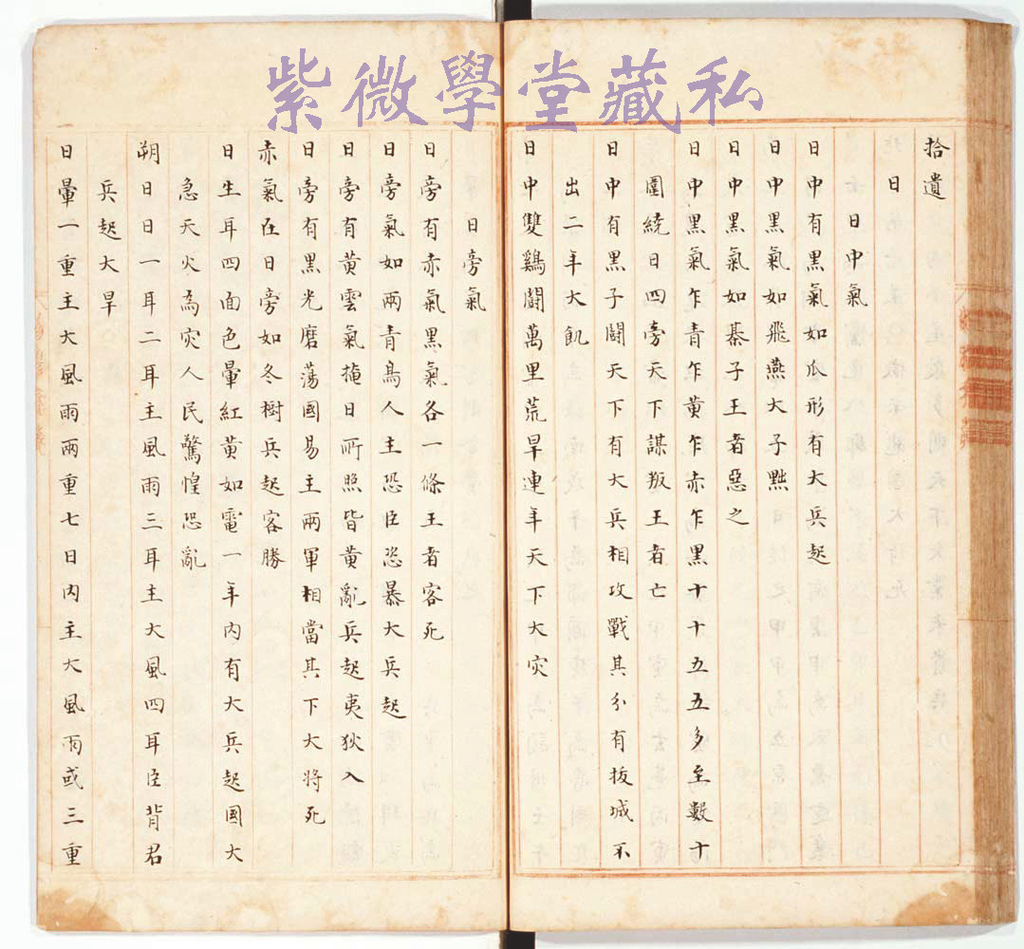 紫微學堂藏私
拾遺
日
日中氣
日中有黑氣如瓜形有大兵起
日中黑氣如飛燕大子黜
日中黑氣如棊子王者惡之
日中黑氣乍青乍黄乍赤乍黑十十五五多至數十
圍繞日四旁天下謀叛王者亡
日中有黑子鬪天下有大兵相攻戰其分有拔城不
出二年大飢
日中雙鷄鬪萬里荒旱連年天下大灾
日旁氣
日旁有赤氣黑氣各一條王者客死
日旁氣如兩青鳥人主恐臣恣暴大兵起
日旁有黄雲氣掩日所照皆黄亂兵起夷狄入
日旁有黑光磨蕩國易主兩軍相當其下大將死
赤氣在日旁如冬樹兵起客勝
日生耳四面色暈紅黄如電一年内有大兵起國大
急天火為灾人民驚惶恐亂
朔日日一耳二耳主風雨三耳主大風四耳臣背君
兵起大旱
日暈一重主大風雨兩重七日内主大風雨或三重